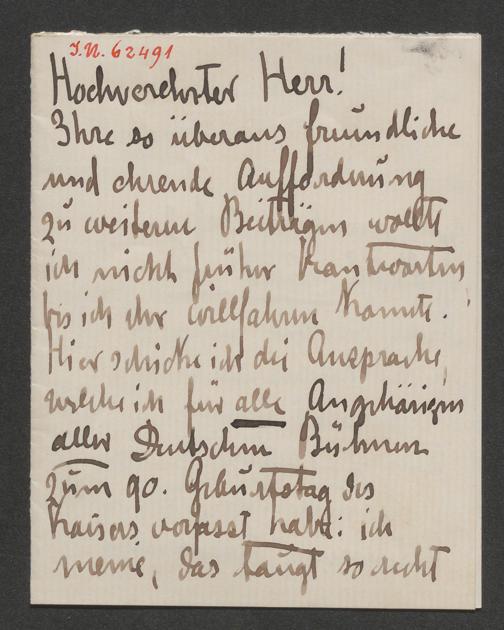 J.N. 62491
Hochverehrter Herr!
Ihre so überaus freundliche
und ehrende Aufforderung
zu weiteren Beiträgen wollte
ich nicht früher beantworten
bis ich ihr willfahren konnte.
Hier schicke ich die Ansprache,
welche ich für alle Angehörigen
aller Deutschen Bühnen
zum 90. Geburtstag des
Kaisers verfasst habe: ich
meine, das taugt so recht